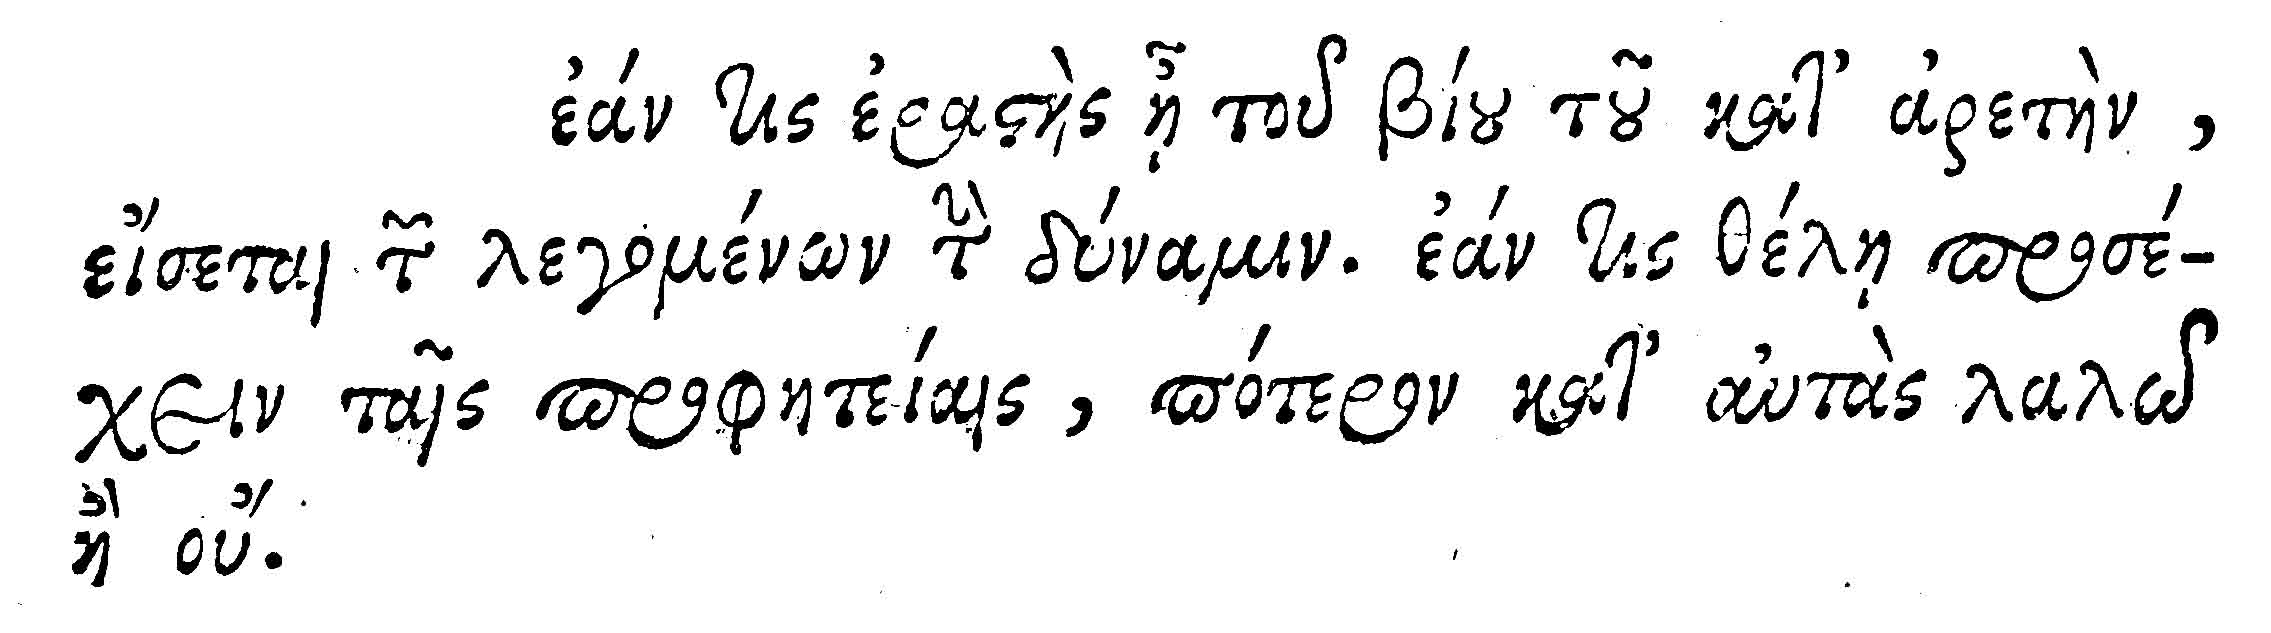 ἐάν τις ἐραστὴς ᾖ τοῦ βίου τοῦ κατ’ ἀρετὴν,
εἴσεται τῶν λεγομένων τὴν δύναμιν. ἐάν τις θέλῃ προσέ-
χειν ταῖς προφητείαις, πότερον κατ’ αὐτὰς λαλῶ
ἢ οὔ.